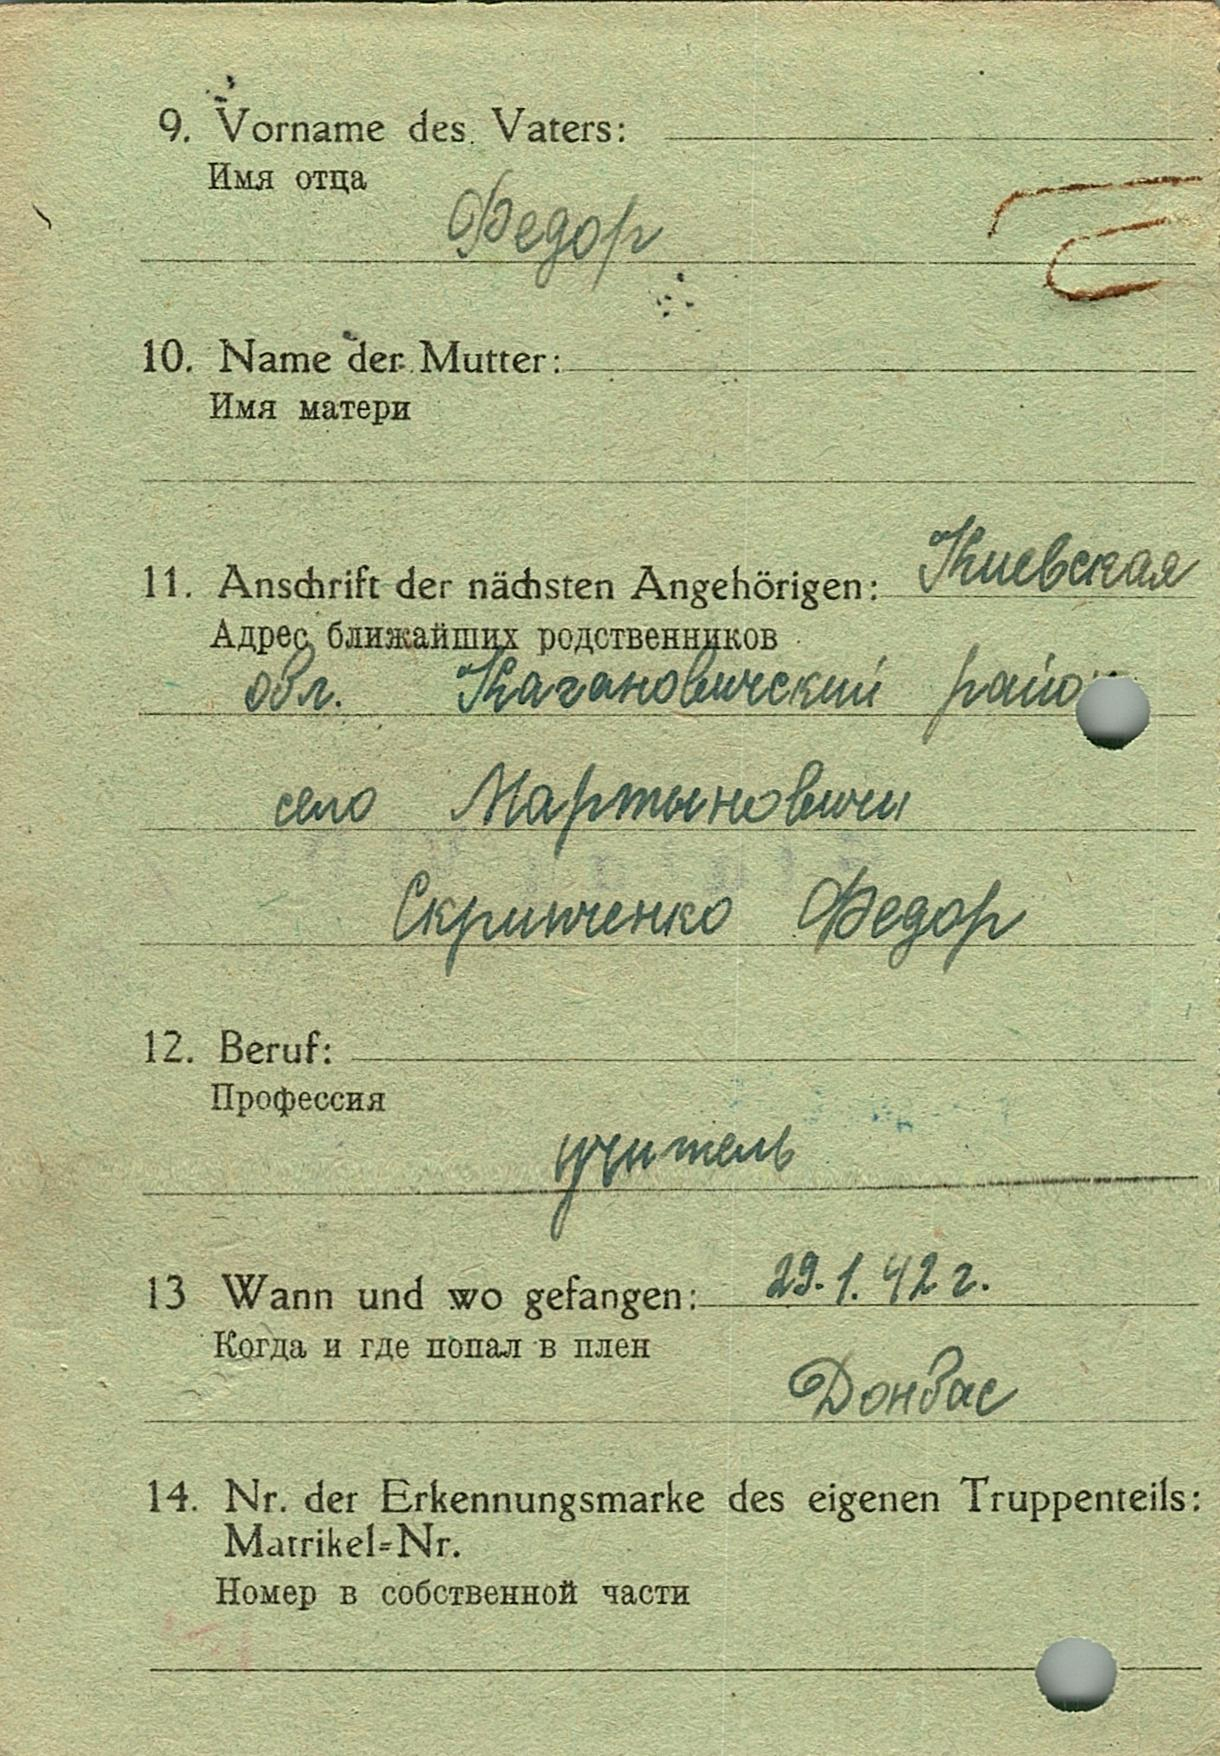 9. Vorname des Vaters:
Имя отца
Федор
10. Name der Mutter:
Имя матери
11. Anschrift der nächsten Angehörigen: Киевская
Адрес ближайших родственников
обл. Кагановичский район
село Мартыновичи
Скрипченко Федор
12. Beruf:
Профессия
учитель
13 Wann und wo gefangen: 29.1.42 г.
Когда и где попал в плен
Донбас
14. Nr. der Erkennungsmarke des eigenen Truppenteils:
Matrikel=Nr.
Номер в собственной части